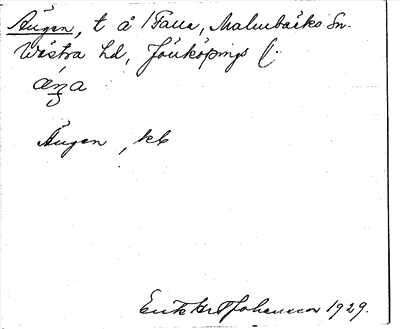 Ängen, t å Falla, Malmbäcks Sn.
Västra hd, Jönköpings l.
äŋa
Ängen, kk
Erik Johansson 1929.